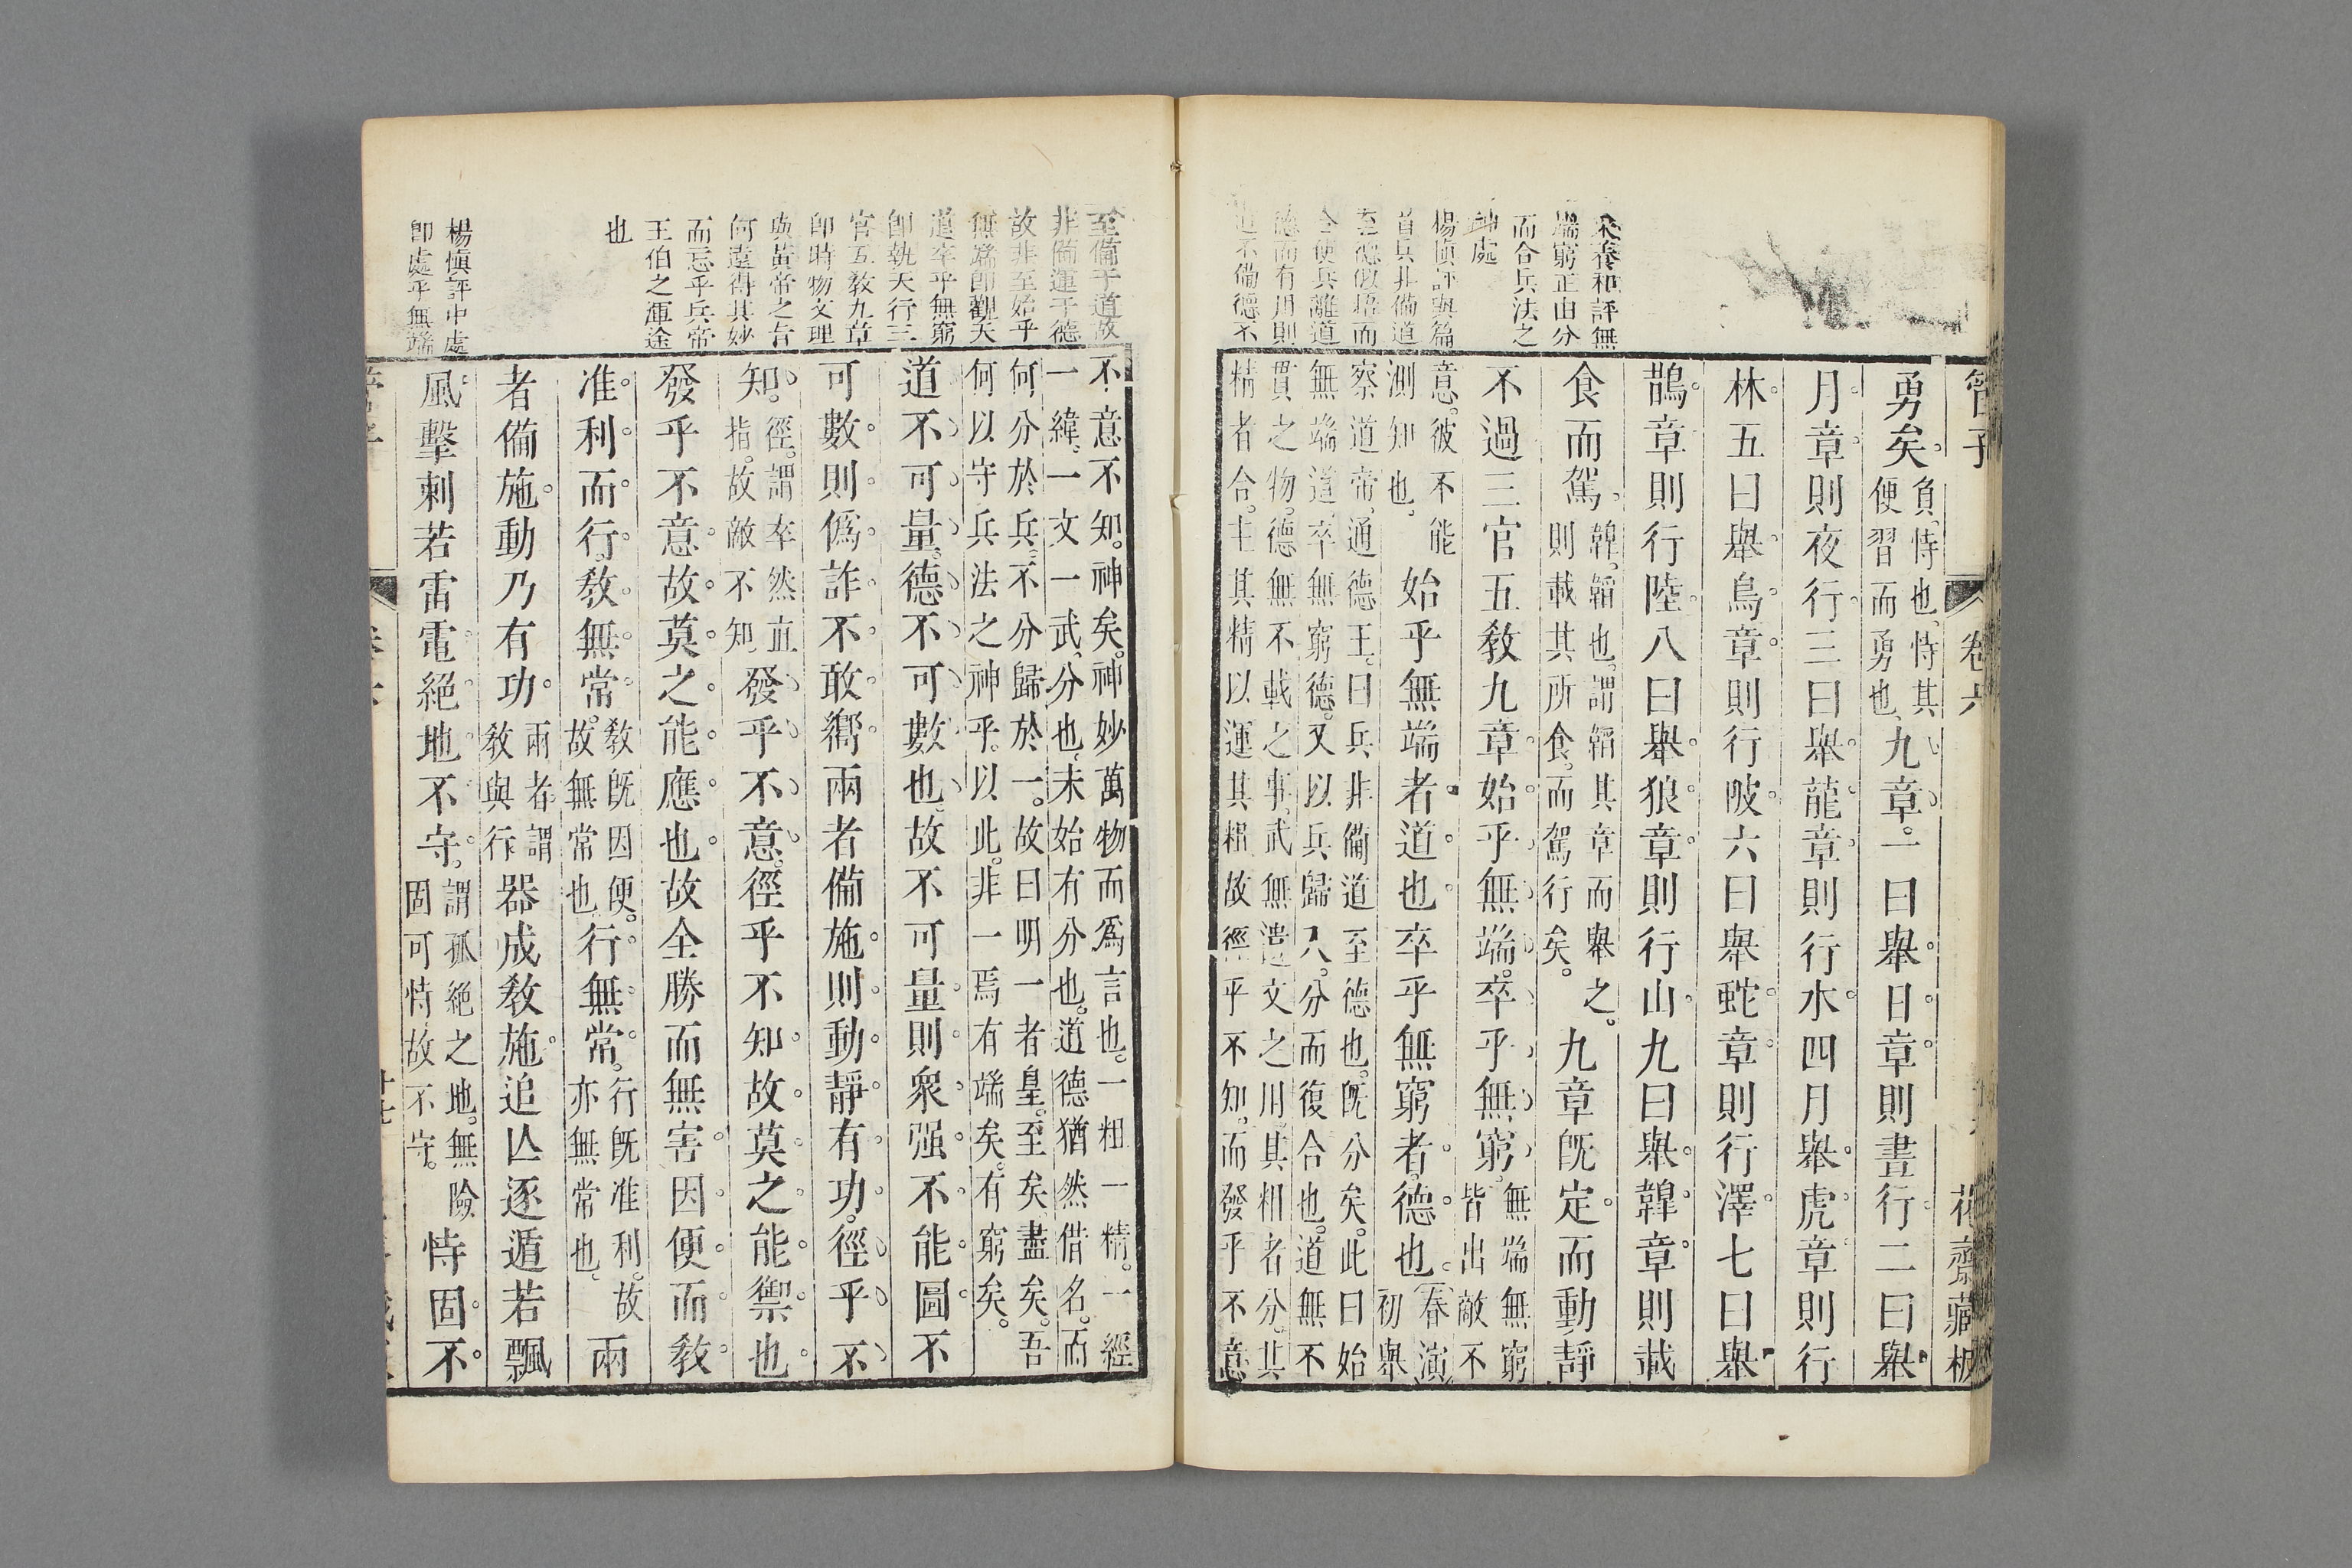 管子 卷六 花齋藏板
朱養和評無
端窮正由分
而合兵法之
神處
楊慎評與篇
首兵非備道
至德
全便兵離道
德而有用則
道不備德不
勇矣。負恃也恃其
便習而勇也九章。一曰舉日章則晝行二曰舉
月章則夜行三曰舉龍章則行水四月舉虎章則行
林五曰舉鳥章則行陂六曰舉蛇章則行澤七曰舉
鵲章則行陸八曰舉狼章則行山九曰舉韓章則載
食而駕韓韜也謂韜其章而舉之。
則載其所食。而駕行矣。九章旣定而動靜
不過三官五教九章始乎無端。卒乎無窮。無端無窮
皆出敵不
意。彼不能
測知也。始乎無端者道也卒乎無窮者。德也春演
初舉
察道帝通德王。曰兵非備道至德也。旣分矣。此曰始
無端道卒無窮德。又以兵歸入。分而復合也。道無不
貫之物。德無不載之事。武無遺文之用。其粗者分。其
精者合。主其精以運其粗故徑乎不知。而發乎不意
至備乎道故
非備運于德
故非至始乎
無端卽觀天
道卒乎無窮
卽執天行三
官五教九章
卽時物文理
與黃帝之旨
何遠得其妙
而忘乎兵帝
王伯之運途
也
楊慎評中處
卽處乎無端
不意不知。神矣。神妙萬物而爲言也。一粗一精。一經
一緯。一文一武。分也。未始有分也。道德猶然借名。而
何分於兵。不分歸於一。故曰明一者皇。至矣盡矣。吾
何以守兵法之神乎。以此。非一焉有端矣。有窮矣。
道不可量。德不可數也。故不可量則衆强不能圖不
可數則僞詐不敢嚮兩者備施則動靜有功。徑乎不
知。徑。謂卒然直
指。故敵不知發乎不意。徑乎不知故莫之能禦也
發乎不意故莫之能應也故全勝而無害因便而教
准利而行。教無常。教旣因便。
故無常也行無常。行旣准利。故
亦無常也。兩
者備施動乃有功兩者謂
教與行器成教施追亾逐遁若飄
風擊刺若雷電絕地不守。謂孤絕之地。無險
固可恃故不守。恃固不